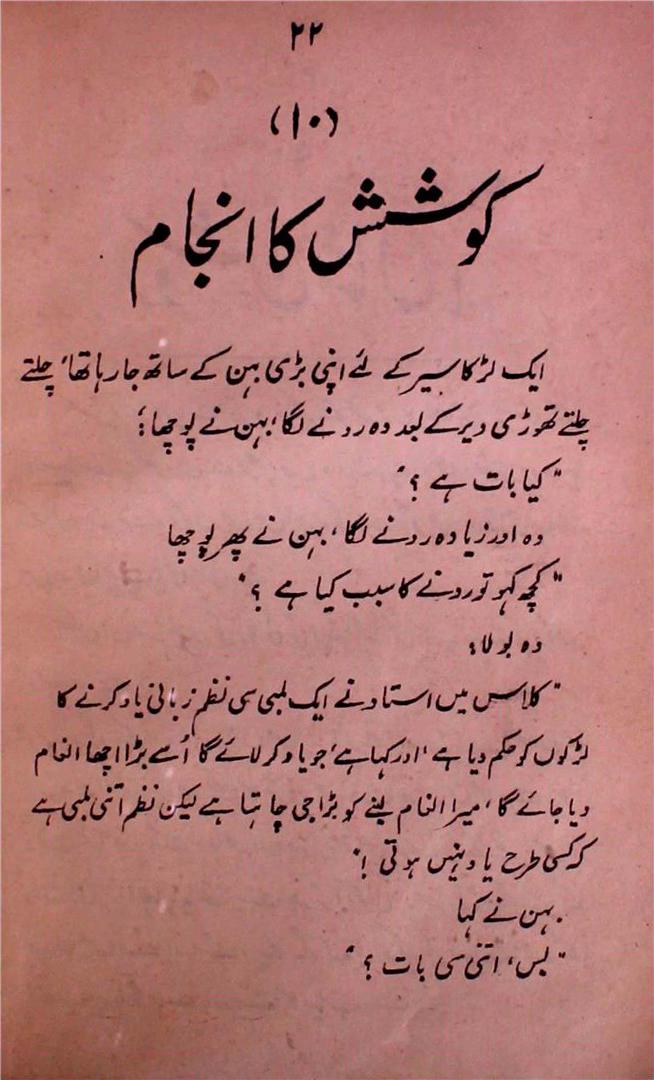 ۲۲
(۱۰)
کوشش کا انجام
ایک لڑکا سیر کے لئے اپنی بڑی بہن کے ساتھ جا رہا تھا، چلتے
چلتے تھوڑی دیر کے بعد وہ رونے لگا، بہن نے پوچھا؛
"کیا بات ہے ؟"
وہ اور زیادہ رونے لگا، بہن نے پھر پوچھا
"کچھ کہو تو رونے کا سبب کیا ہے ؟"
وہ بولا:
"کلاس میں استاد نے ایک لمبی سی نظم زبانی یاد کرنے کا
لڑکوں کو حکم دیا ہے، اور کہا ہے، جو یاد کر لائے گا اُسے بڑا اچھا انعام
دیا جائے گا، میرا انعام لینے کو بڑا جی چاہتا ہے لیکن نظم اتنی لمبی ہے
کہ کسی طرح یاد نہیں ہوتی !"
بہن نے کہا
"بس، اتنی سی بات ؟"